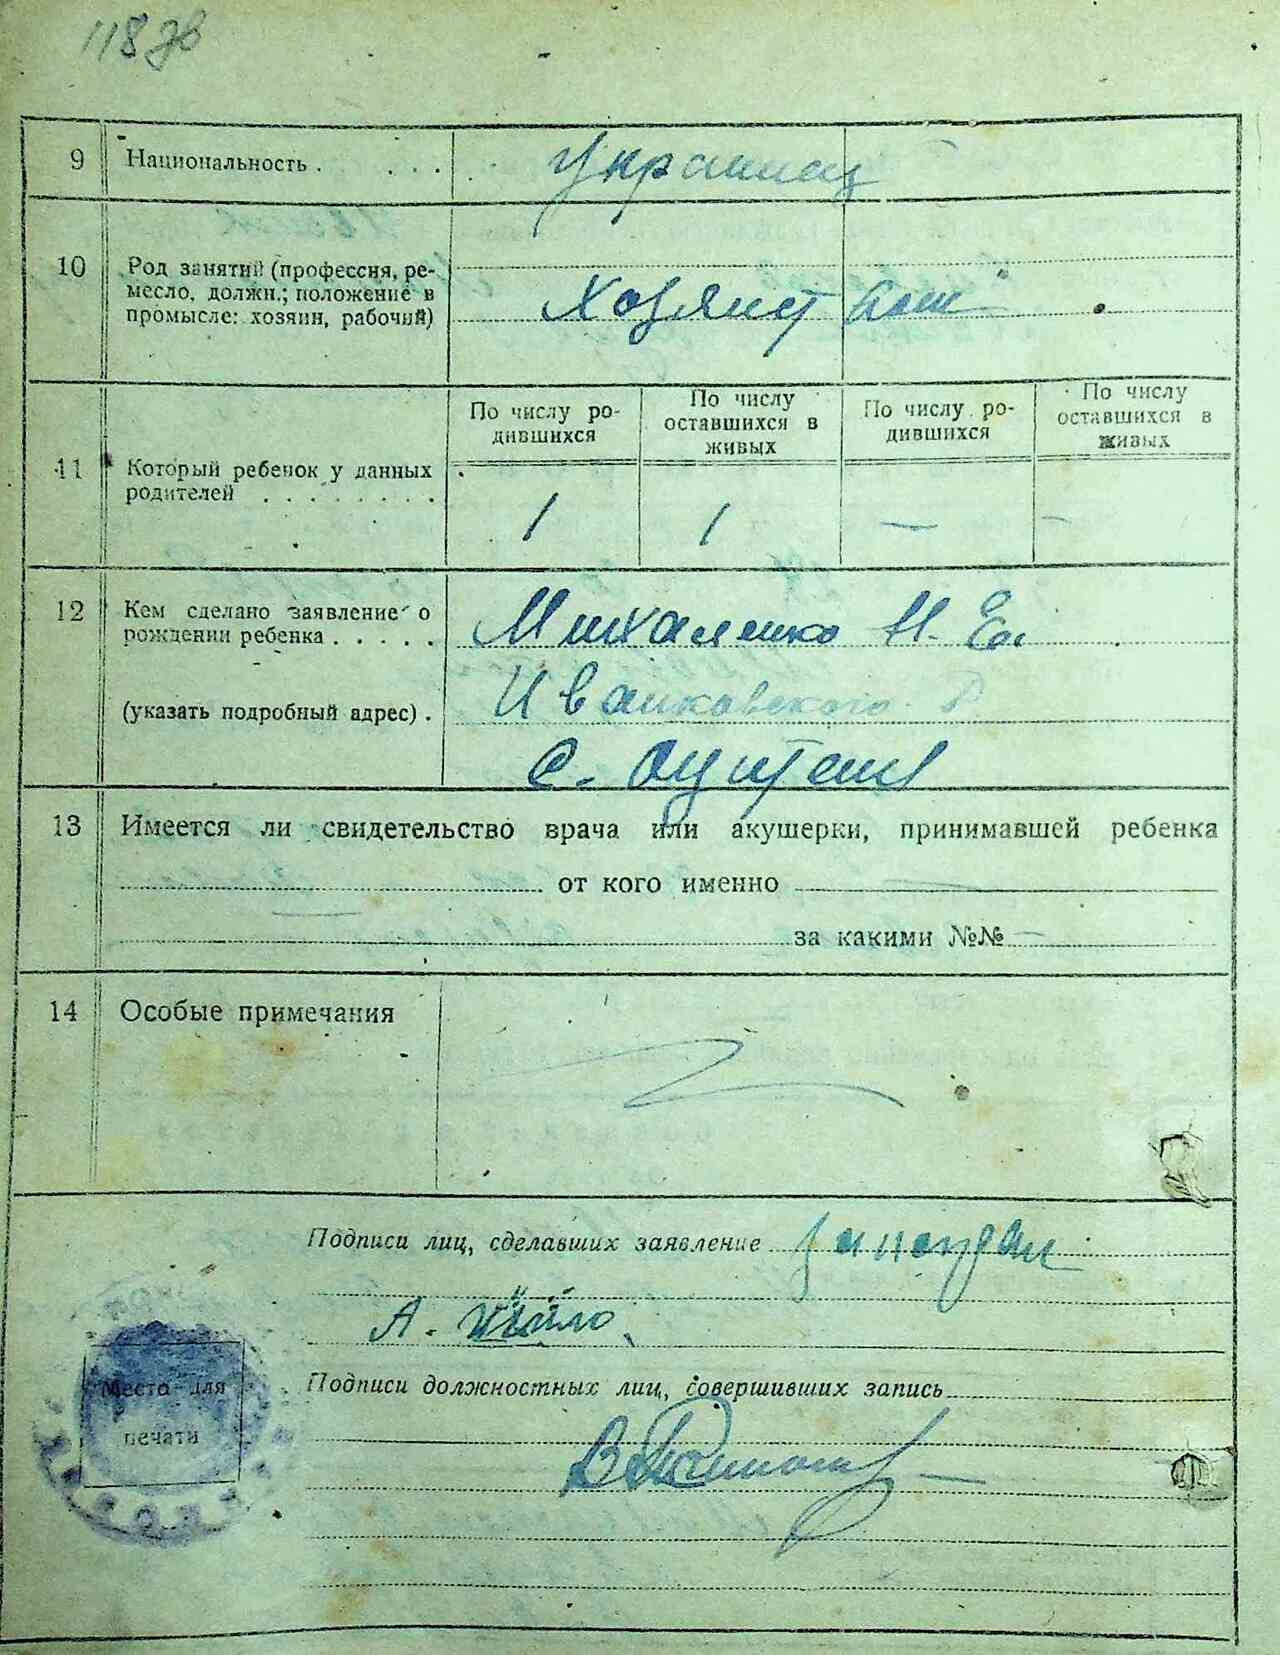 118 зв
9 Национальность . . . . Украинец
10 Род занятий (профессия, ре-
месло, должн.; положение в
промысле: хозяин, рабочий)
По числу ро-
дившихся
По числу
оставшихся в
живых
По числу ро-
дившихся
По числу
оставшихся в
живых
11 Который ребенок у данных
родителей . . . . . . . .
1 1 — —
12 Кем сделано заявление о
рождении ребенка . . . . . Михаленко Н. Е.
(указать подробный адрес) . Иванковского р.
с.
13 Имеется ли свидетельство врача или акушерки, принимавшей ребенка
от кого именно
за какими №№ —
14 Особые примечания
Подписи лиц, сделавших заявление
А.
Место для
печати
Подписи должностных лиц, совершивших запись